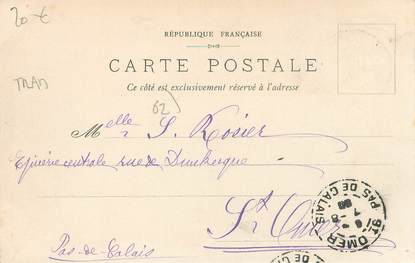 20 €
RÉPUBLIQUE FRANÇAISE
CARTE POSTALE
Ce côté est exclusivement réservé à l'adresse
TRAD
62
Melle S. Rosier
Epicerie centrale rue de Dunkerque
St Omer
Pas-de-Calais
ST OMER
PAS DE CALAIS